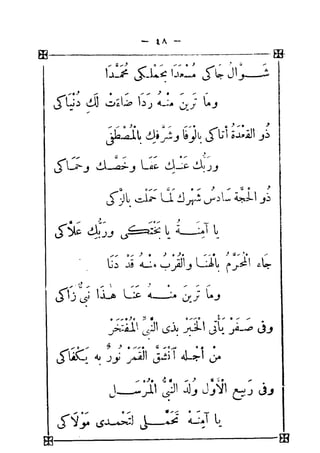 — ٤٨ —
شَـوالُ جَاكِى مُسْعَدًا بِحَمْلِكِى مُحَمَّدَا
وما تَرَيْنَ مِنْهُ رَدَا ضَاءَتْ لَكِ دُنْيَاكِى
ذُو القَعْدَةْ أتَاكِى بِالْوَفَا وشَرَّفِكِ بِالْمُصْطَفَى
ورَبُّكِ عَنْكِ عَفَا وخَصَّكِ وحَمَاكِى
ذُو الحَجَّةْ سَادِسُ شَهْرِكِ لَمَّا حَمَلْتِ بِالزَّكِى
يا آمِنَةُ يا بَخْتَكِى وربُّكِ عَلَاكِى
جَاءِ الْمُحَرَّمُ بِالْهَنَا وَالْقُرْبُ مِنْهُ قَدْ دَنَا
وما تَرَيْنَ مِنْهُ عَنَا هٰذَا نَبِىٌّ زَاكِى
وفى صَفَرْ يَأْتِى الْخَبَرْ بِذِى النَّبِىِّ الْمُفْتَخَرْ
مَنْ أَجْلِهِ آنْشَقَّ الْقَمَرْ نُورٌ بِهِ يَكْفَاكِى
وفى رَبِيعِ الْأَوَّلِ وُلِدَ النَّبِىُّ الْمُرْسَلِ
يا آمِنَةْ تَحَمَّلِى لِتَحْمَدِى مَوْلَاكِى